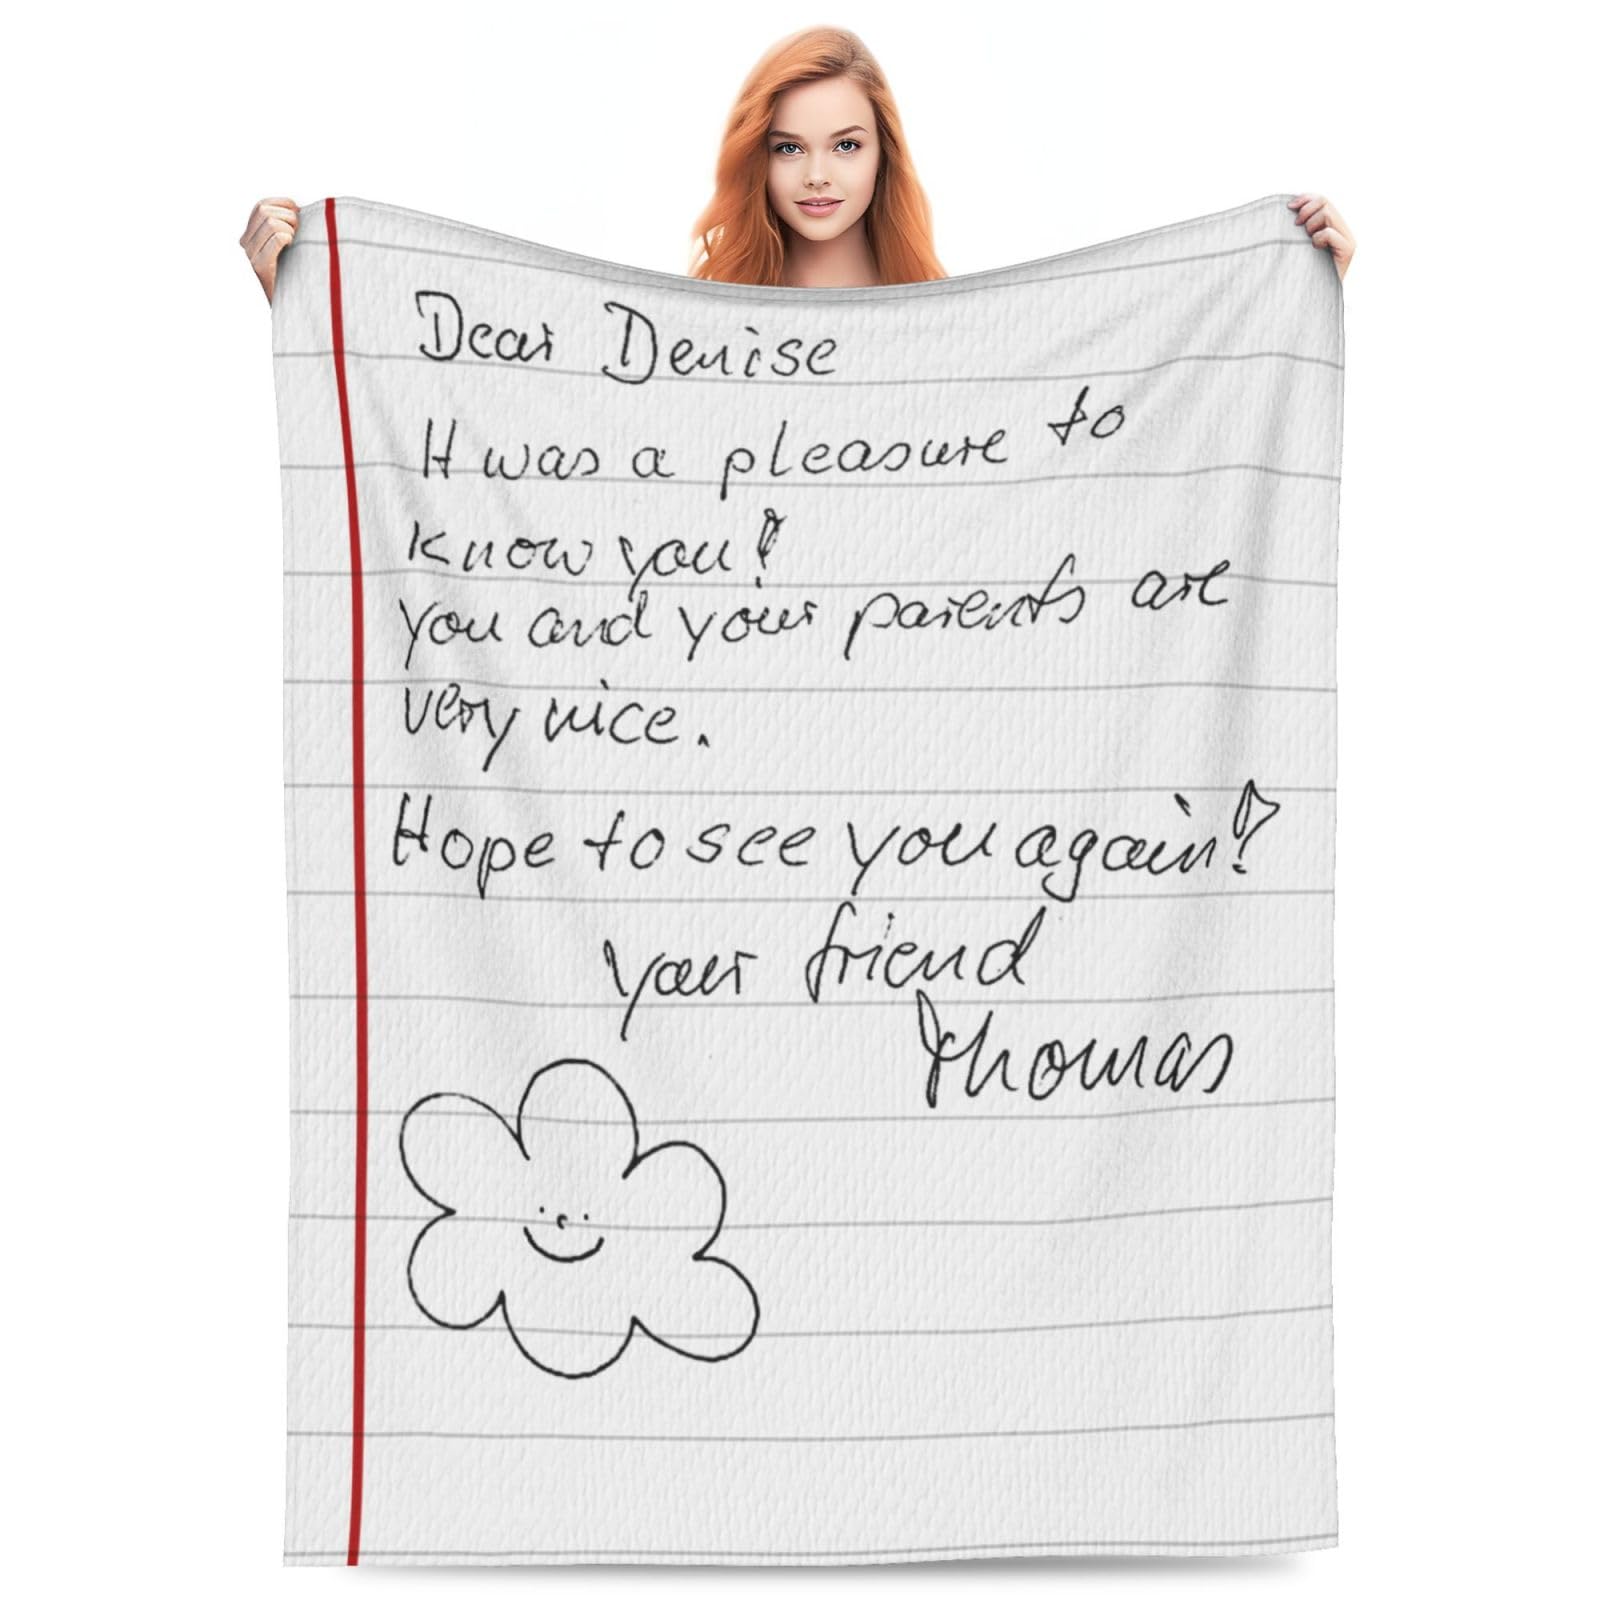 Dear Denise
It was a pleasure to
know you!
you and your parents are
very nice.
Hope to see you again!
your friend
Thomas